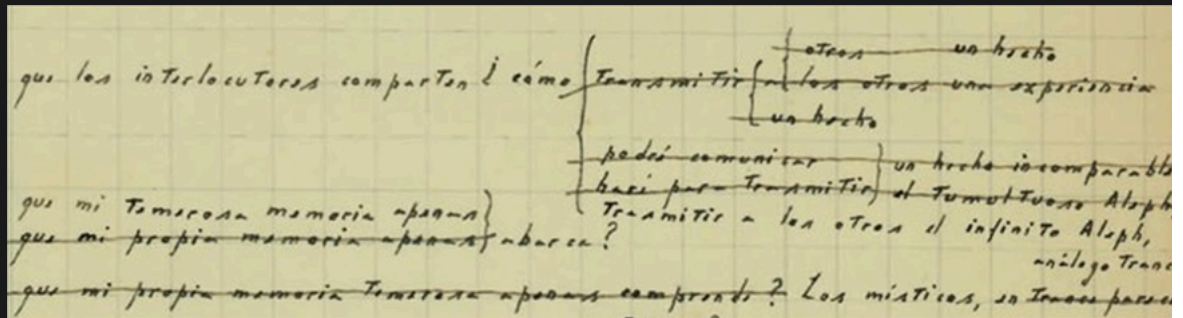 otros un hecho
que los interlocutores comparten ¿ cómo transmitir a los otros una experiencia
un hecho
podré comunicar un hecho incomparable
haré para Trasmitir el Tumultuoso Aleph
que mi Temerosa memoria apenas Trasmitir a los otros el infinito Aleph,
que mi propia memoria apenas abarca?
análogo Trance
que mi propia memoria Temerosa apenas comprende? Los místicos, en Trance